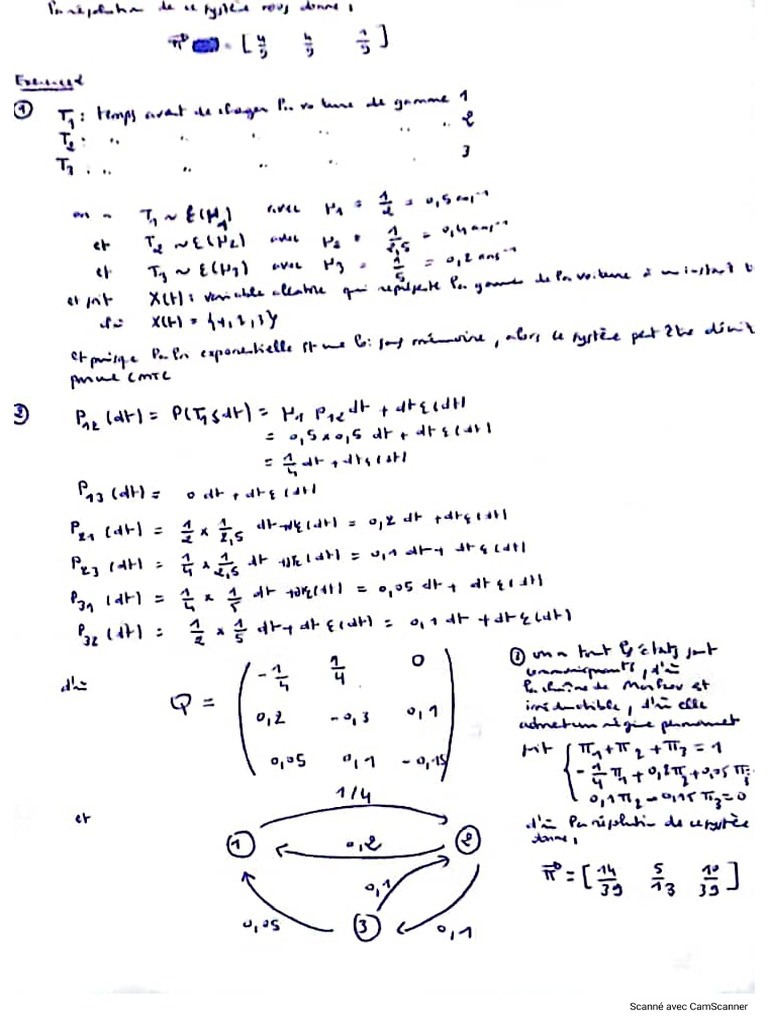 la résolution de ce système nous donne,
π⁰ = [ 4/9 4/9 1/9 ]
Exercice 2
① T₁ : temps avant de changer la voiture de gamme 1
T₂ : " " " " " 2
T₃ : " " " " 3
on a T₁ ~ ε(μ₁) avec μ₁ = 1/2 = 0,5 an⁻¹
et T₂ ~ ε(μ₂) avec μ₂ = 1/2,5 = 0,4 ans⁻¹
et T₃ ~ ε(μ₃) avec μ₃ = 1/5 = 0,2 ans⁻¹
et soit X(t) : variable aléatoire qui représente la gamme de la voiture à un instant t
d'où X(t) = {1, 2, 3}
et puisque la loi exponentielle est une loi sans mémoire, alors ce système peut être décrit
par une CMTC
② P₁₂(dt) = P(T₁ ≤ dt) = μ₁ P₁₂ dt + dt ε(dt)
= 0,5 × 0,5 dt + dt ε(dt)
= 1/4 dt + dt ε(dt)
P₁₃(dt) = 0 dt + dt ε(dt)
P₂₁(dt) = 1/2 × 1/2,5 dt + dt ε(dt) = 0,2 dt + dt ε(dt)
P₂₃(dt) = 1/4 × 1/2,5 dt + dt ε(dt) = 0,1 dt + dt ε(dt)
P₃₁(dt) = 1/4 × 1/5 dt + dt ε(dt) = 0,05 dt + dt ε(dt)
P₃₂(dt) = 1/2 × 1/5 dt + dt ε(dt) = 0,1 dt + dt ε(dt)
d'où Q =
-1/4 1/4 0
0,2 -0,3 0,1
0,05 0,1 -0,15
et
1/4
① 0,2 ②
0,1
0,05 ③ 0,1
on a tout les états sont
communiquants, d'où
la chaîne de Markov est
irréductible, d'où elle
admet un régime permanent
soit { π₁ + π₂ + π₃ = 1
-1/4 π₁ + 0,2 π₂ + 0,05 π₃
0,1 π₂ - 0,15 π₃ = 0
d'où la résolution de ce système
donne,
π⁰ = [ 14/39 5/13 10/39 ]
Scanné avec CamScanner